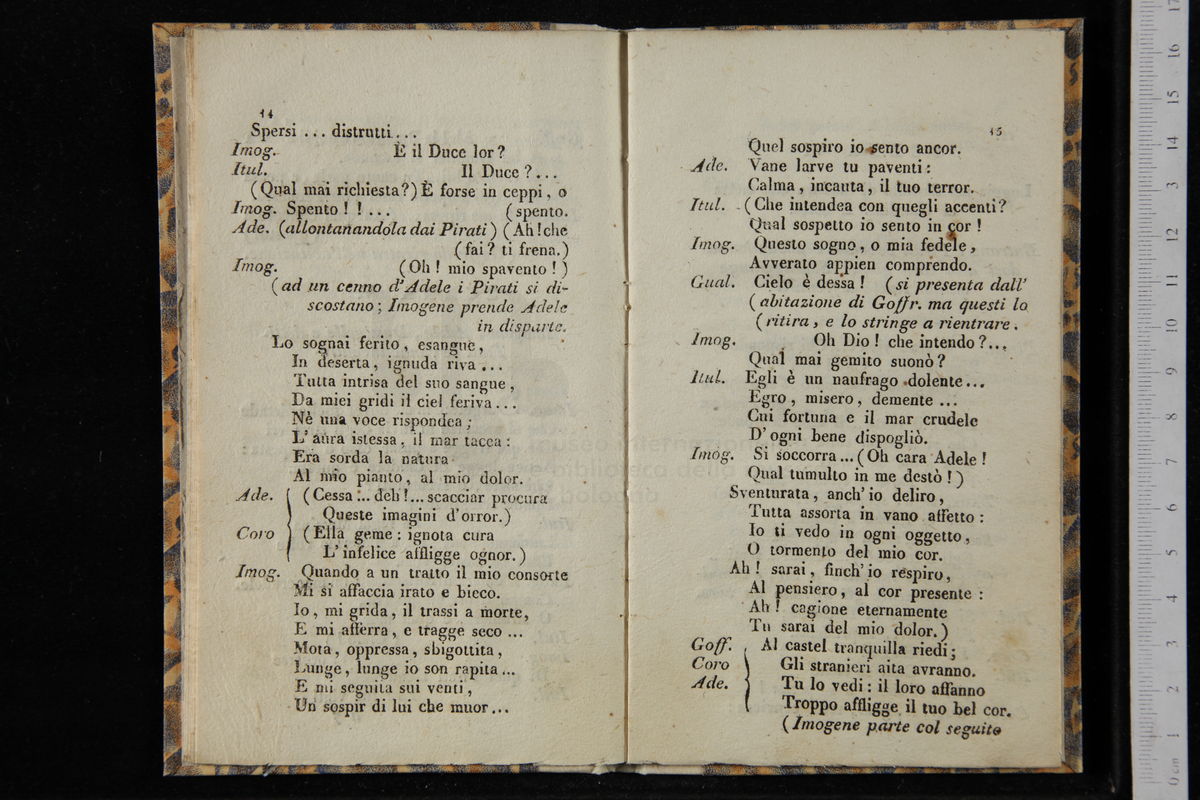 14
Spersi ... distrutti...
Imog. È il Duce lor?
Itul. Il Duce?...
(Qual mai richiesta?) È forse in ceppi, o
Imog. Spento!!... (spento.
Ade. (allontanandola dai Pirati) (Ah! che
(fai? ti frena.)
Imog. (Oh! mio spavento!)
(ad un cenno d'Adele i Pirati si di-
scostano; Imogene prende Adele
in disparte.
Lo sognai ferito, esangue,
In deserta, ignuda riva...
Tutta intrisa del suo sangue,
Da miei gridi il ciel feriva...
Nè una voce rispondea;
L'aura istessa, il mar tacea:
Era sorda la natura
Al mio pianto, al mio dolor.
Ade. (Cessa... deh!... scacciar procura
Queste imagini d'orror.)
Coro (Ella geme: ignota cura
L'infelice affligge ognor.)
Imog. Quando a un tratto il mio consorte
Mi si affaccia irato e bieco.
Io, mi grida, il trassi a morte,
E mi afferra, e tragge seco...
Mota, oppressa, sbigottita,
Lunge, lunge io son rapita...
E mi seguita sui venti,
Un sospir di lui che muor...
15
Quel sospiro io sento ancor.
Ade. Vane larve tu paventi:
Calma, incauta, il tuo terror.
Itul. (Che intendea con quegli accenti?
Qual sospetto io sento in cor!
Imog. Questo sogno, o mia fedele,
Avverato appien comprendo.
Gual. Cielo è dessa! (si presenta dall'
(abitazione di Goffr. ma questi lo
(ritira, e lo stringe a rientrare.
Imog. Oh Dio! che intendo?...
Qual mai gemito suonò?
Itul. Egli è un naufrago dolente...
Egro, misero, demente...
Cui fortuna e il mar crudele
D'ogni bene dispogliò.
Imog. Si soccorra... (Oh cara Adele!
Qual tumulto in me destò!)
Sventurata, anch'io deliro,
Tutta assorta in vano affetto:
Io ti vedo in ogni oggetto,
O tormento del mio cor.
Ah! sarai, finch'io respiro,
Al pensiero, al cor presente:
Ah! cagione eternamente
Tu sarai del mio dolor.)
Goff. Al castel tranquilla riedi;
Coro Gli stranieri aita avranno.
Ade. Tu lo vedi: il loro affanno
Troppo affligge il tuo bel cor.
(Imogene parte col seguito